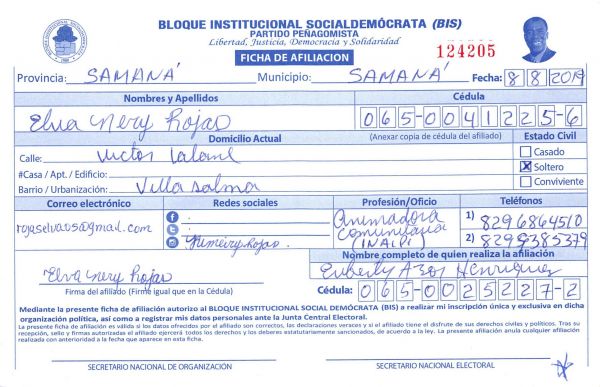 BLOQUE INSTITUCIONAL SOCIALDEMÓCRATA (BIS)
PARTIDO PEÑAGOMISTA
Libertad, Justicia, Democracia y Solidaridad
FICHA DE AFILIACION
124205
Provincia: SAMANÁ Municipio: SAMANÁ Fecha: 8 8 2019
Nombres y Apellidos Cédula
Elva Nery Rojas 065-0041225-6
Domicilio Actual (Anexar copia de cédula del afiliado) Estado Civil
Calle: Victor Casado
#Casa / Apt. / Edificio: X Soltero
Barrio / Urbanización: Villa Salma Conviviente
Correo electrónico Redes sociales Profesión/Oficio Teléfonos
rojaselva05@gmail.com Animadora Comunitaria (INAIPI) 1) 8296864510
Yumeiry Rojas. 2) 8299385379
Nombre completo de quien realiza la afiliación
Elva Nery Rojas Henriquez
Firma del afiliado (Firme igual que en la Cédula) Cédula: 065-0025227-2
Mediante la presente ficha de afiliación autorizo al BLOQUE INSTITUCIONAL SOCIAL DEMÓCRATA (BIS) a realizar mi inscripción única y exclusiva en dicha
organización política, así como a registrar mis datos personales ante la Junta Central Electoral.
La presente ficha de afiliación es válida si los datos ofrecidos por el afiliado son correctos, las declaraciones veraces y si el afiliado tiene el disfrute de sus derechos civiles y políticos. Tras su
recepción, sello y firmas autorizadas el afiliado ejercerá todos los derechos y los deberes estatutariamente sancionados, de acuerdo a la ley. La presente afiliación anula cualquier afiliación
realizada con anterioridad a la fecha que aparece en esta ficha.
SECRETARIO NACIONAL DE ORGANIZACIÓN SECRETARIO NACIONAL ELECTORAL